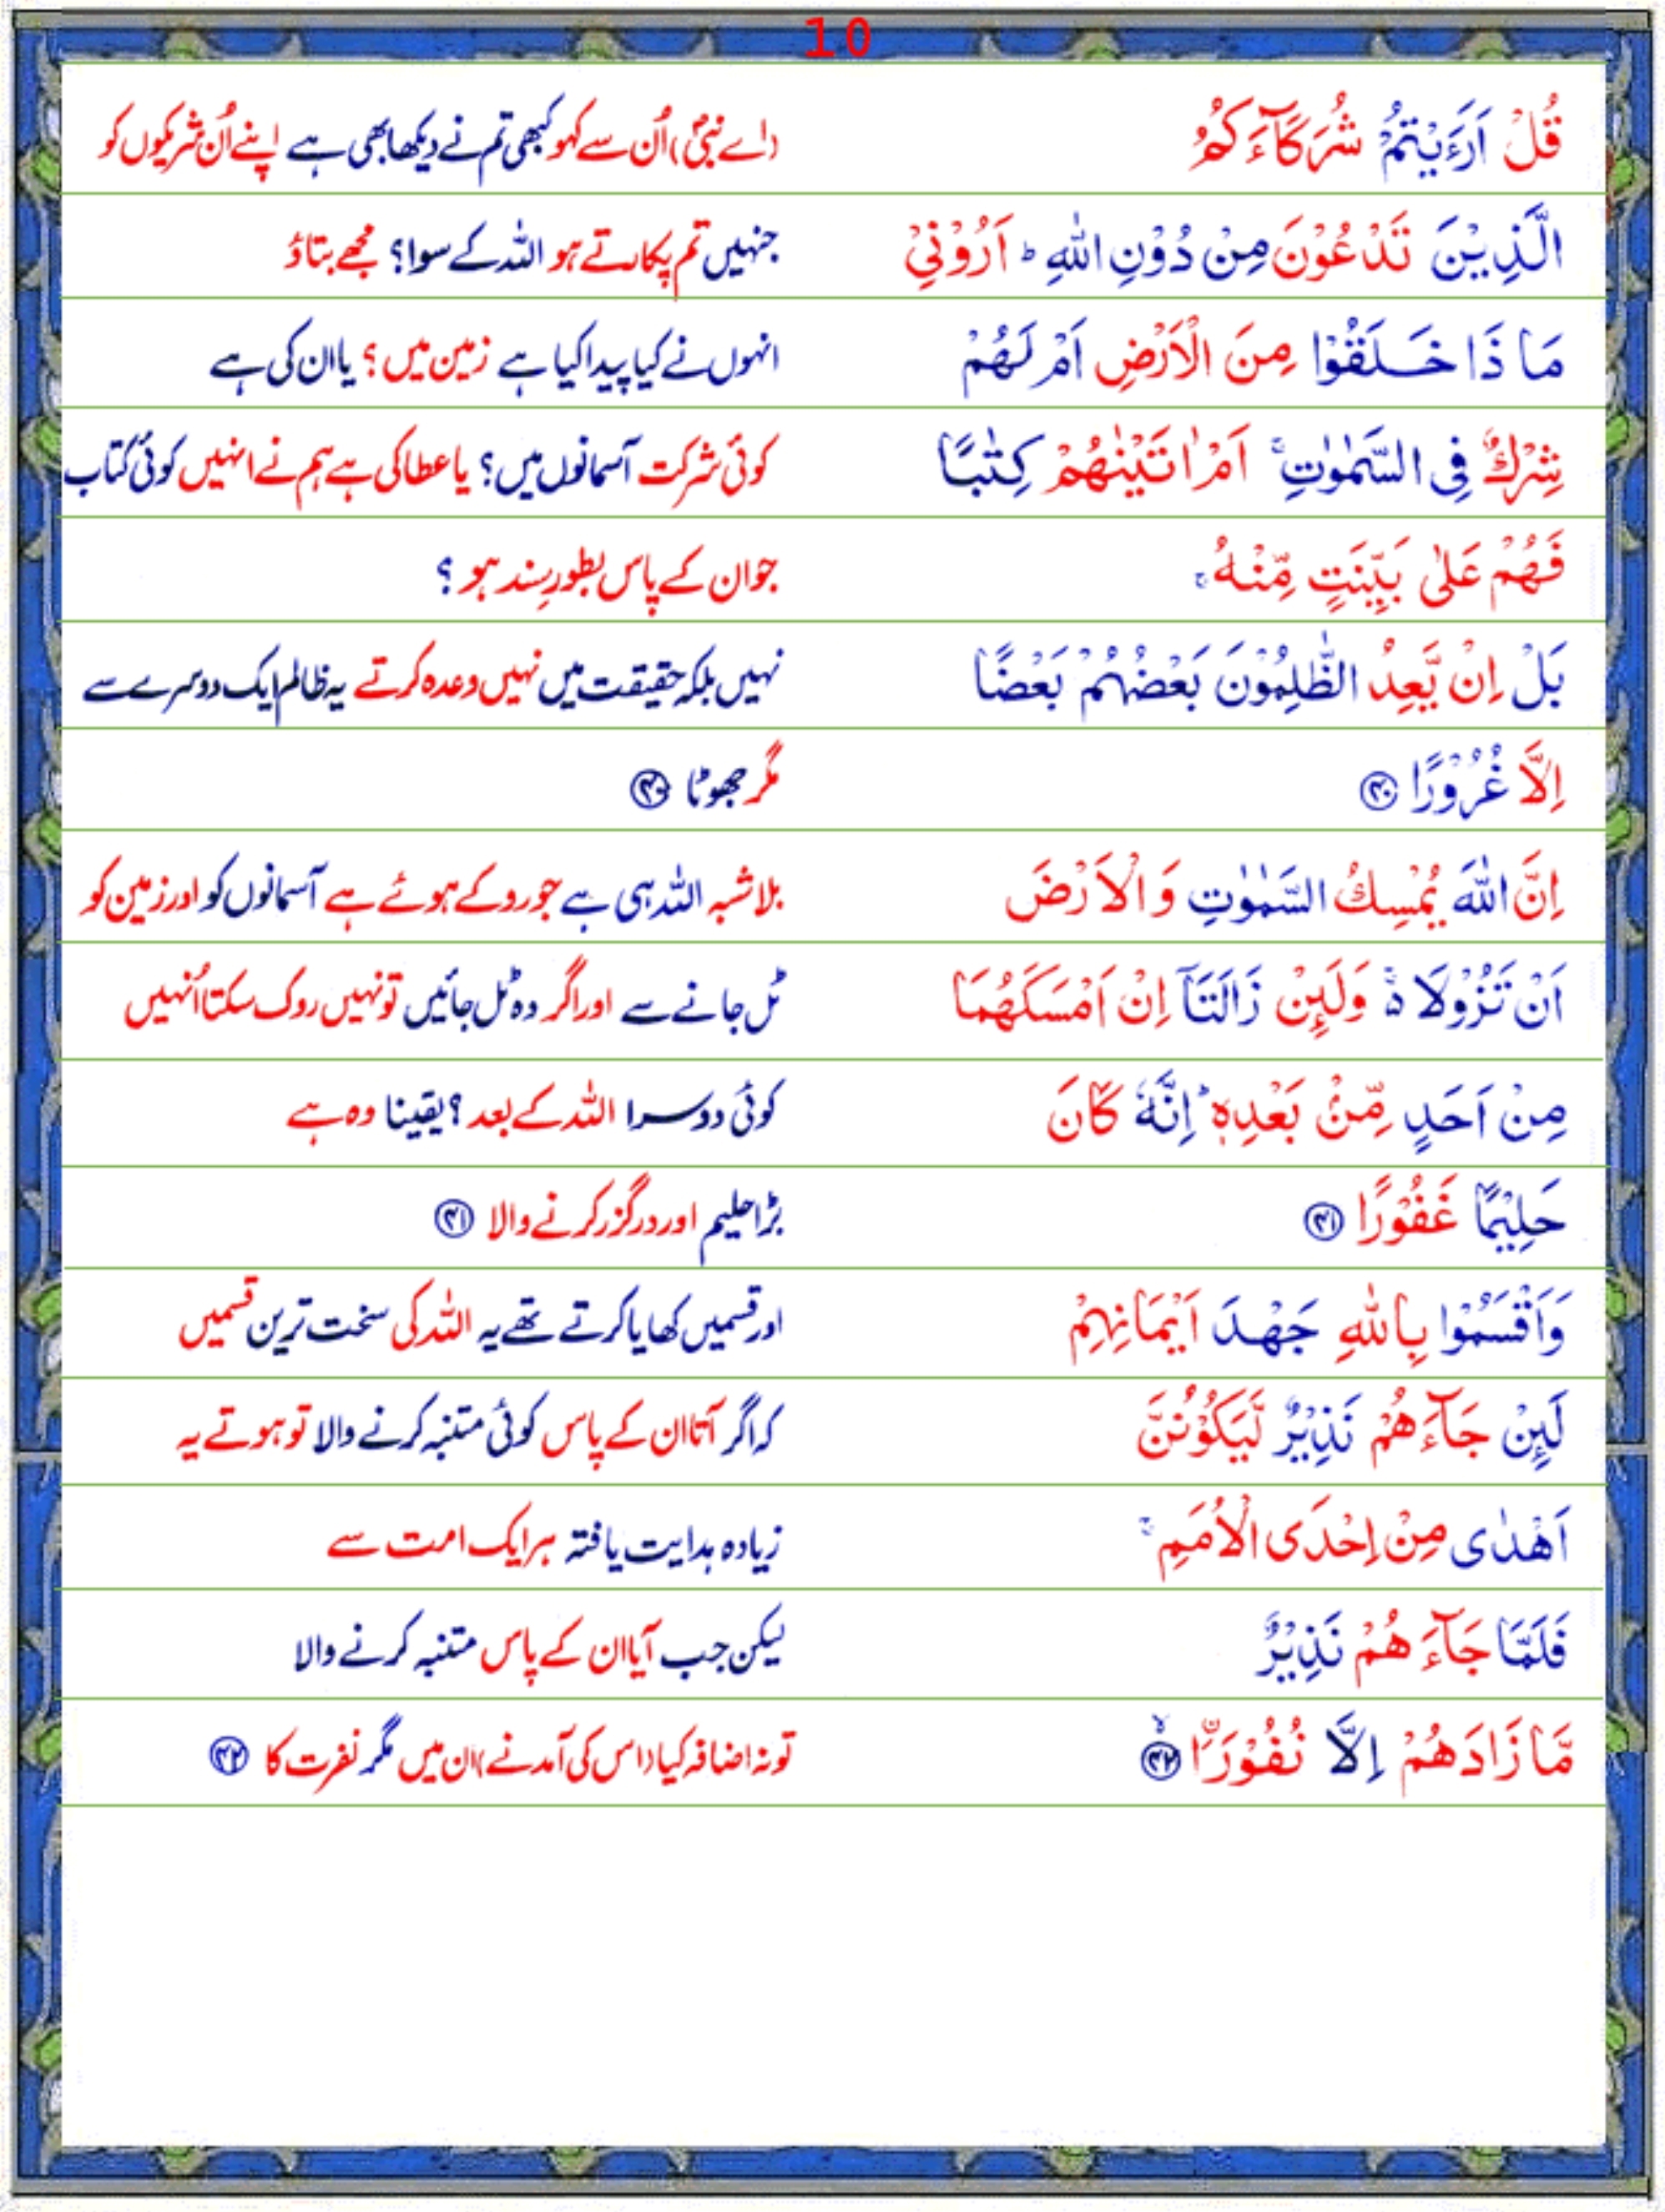 10
قُلْ اَرَءَيْتُمْ شُرَكَآءَكُمُ (اے نبیؐ) اُن سے کہو کبھی تم نے دیکھا بھی ہے اپنے اُن شریکوں کو
الَّذِيْنَ تَدْعُوْنَ مِنْ دُوْنِ اللّٰهِ ؕ اَرُوْنِيْ جنہیں تم پکارتے ہو اللہ کے سوا؟ مجھے بتاؤ
مَا ذَا خَلَقُوْا مِنَ الْاَرْضِ اَمْ لَهُمْ انہوں نے کیا پیدا کیا ہے زمین میں؟ یا ان کی ہے
شِرْكٌ فِى السَّمٰوٰتِ ۚ اَمْ اٰتَيْنٰهُمْ كِتٰبًا کوئی شرکت آسمانوں میں؟ یا عطا کی ہے ہم نے انہیں کوئی کتاب
فَهُمْ عَلٰى بَيِّنَتٍ مِّنْهُ ۚ جو ان کے پاس بطور سند ہو ؟
بَلْ اِنْ يَّعِدُ الظّٰلِمُوْنَ بَعْضُهُمْ بَعْضًا نہیں بلکہ حقیقت میں نہیں وعدہ کرتے یہ ظالم ایک دوسرے سے
اِلَّا غُرُوْرًا ۴۰ مگر جھوٹا ۴۰
اِنَّ اللّٰهَ يُمْسِكُ السَّمٰوٰتِ وَالْاَرْضَ بلاشبہ اللہ ہی ہے جو روکے ہوئے ہے آسمانوں کو اور زمین کو
اَنْ تَزُوْلَا ۚ۬ وَلَئِنْ زَالَتَاۤ اِنْ اَمْسَكَهُمَا ٹل جانے سے اور اگر وہ ٹل جائیں تو نہیں روک سکتا اُنہیں
مِنْ اَحَدٍ مِّنْۢ بَعْدِهٖ ؕ اِنَّهٗ كَانَ کوئی دوسرا اللہ کے بعد ؟ یقینا وہ ہے
حَلِيْمًا غَفُوْرًا ۴۱ بڑا حلیم اور درگزر کرنے والا ۴۱
وَاَقْسَمُوْا بِاللّٰهِ جَهْدَ اَيْمَانِهِمْ اور قسمیں کھایا کرتے تھے یہ اللہ کی سخت ترین قسمیں
لَئِنْ جَآءَهُمْ نَذِيْرٌ لَّيَكُوْنُنَّ کہ اگر آتا ان کے پاس کوئی متنبہ کرنے والا تو ہوتے یہ
اَهْدٰى مِنْ اِحْدَى الْاُمَمِ ۚ زیادہ ہدایت یافتہ ہر ایک امت سے
فَلَمَّا جَآءَ هُمْ نَذِيْرٌ لیکن جب آیا ان کے پاس متنبہ کرنے والا
مَّا زَادَهُمْ اِلَّا نُفُوْرًا ۙ۴۲ تو نہ اضافہ کیا (اس کی آمد نے) ان میں مگر نفرت کا ۴۲